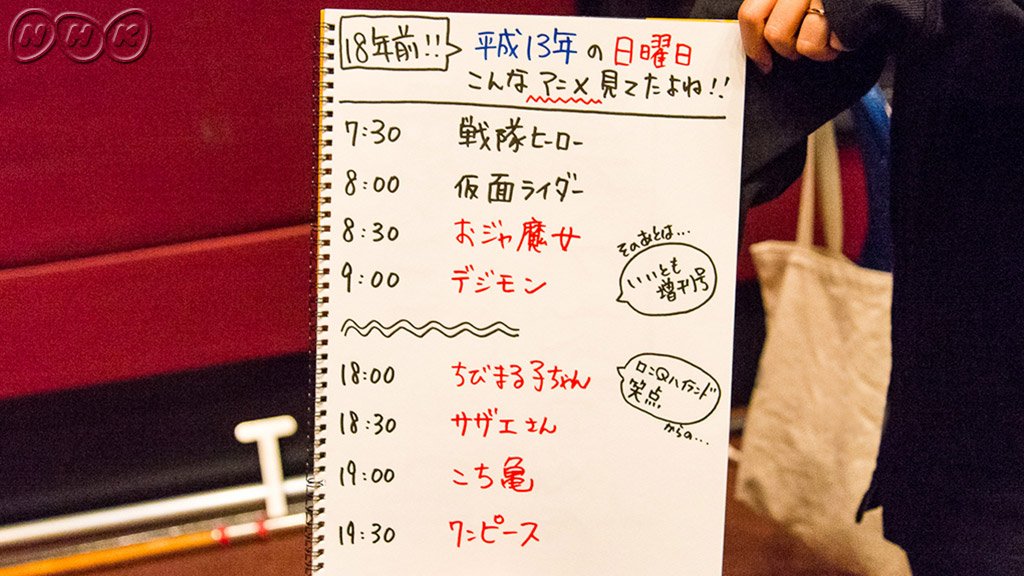 NHK
18年前!!
平成13年の日曜日
こんなアニメ見てたよね!!
7:30 戦隊ヒーロー
8:00 仮面ライダー
8:30 おジャ魔女
9:00 デジモン
そのあとは…
いいとも
増刊号
18:00 ちびまる子ちゃん
18:30 サザエさん
19:00 こち亀
19:30 ワンピース
ロンQハイランド
笑点
からの…